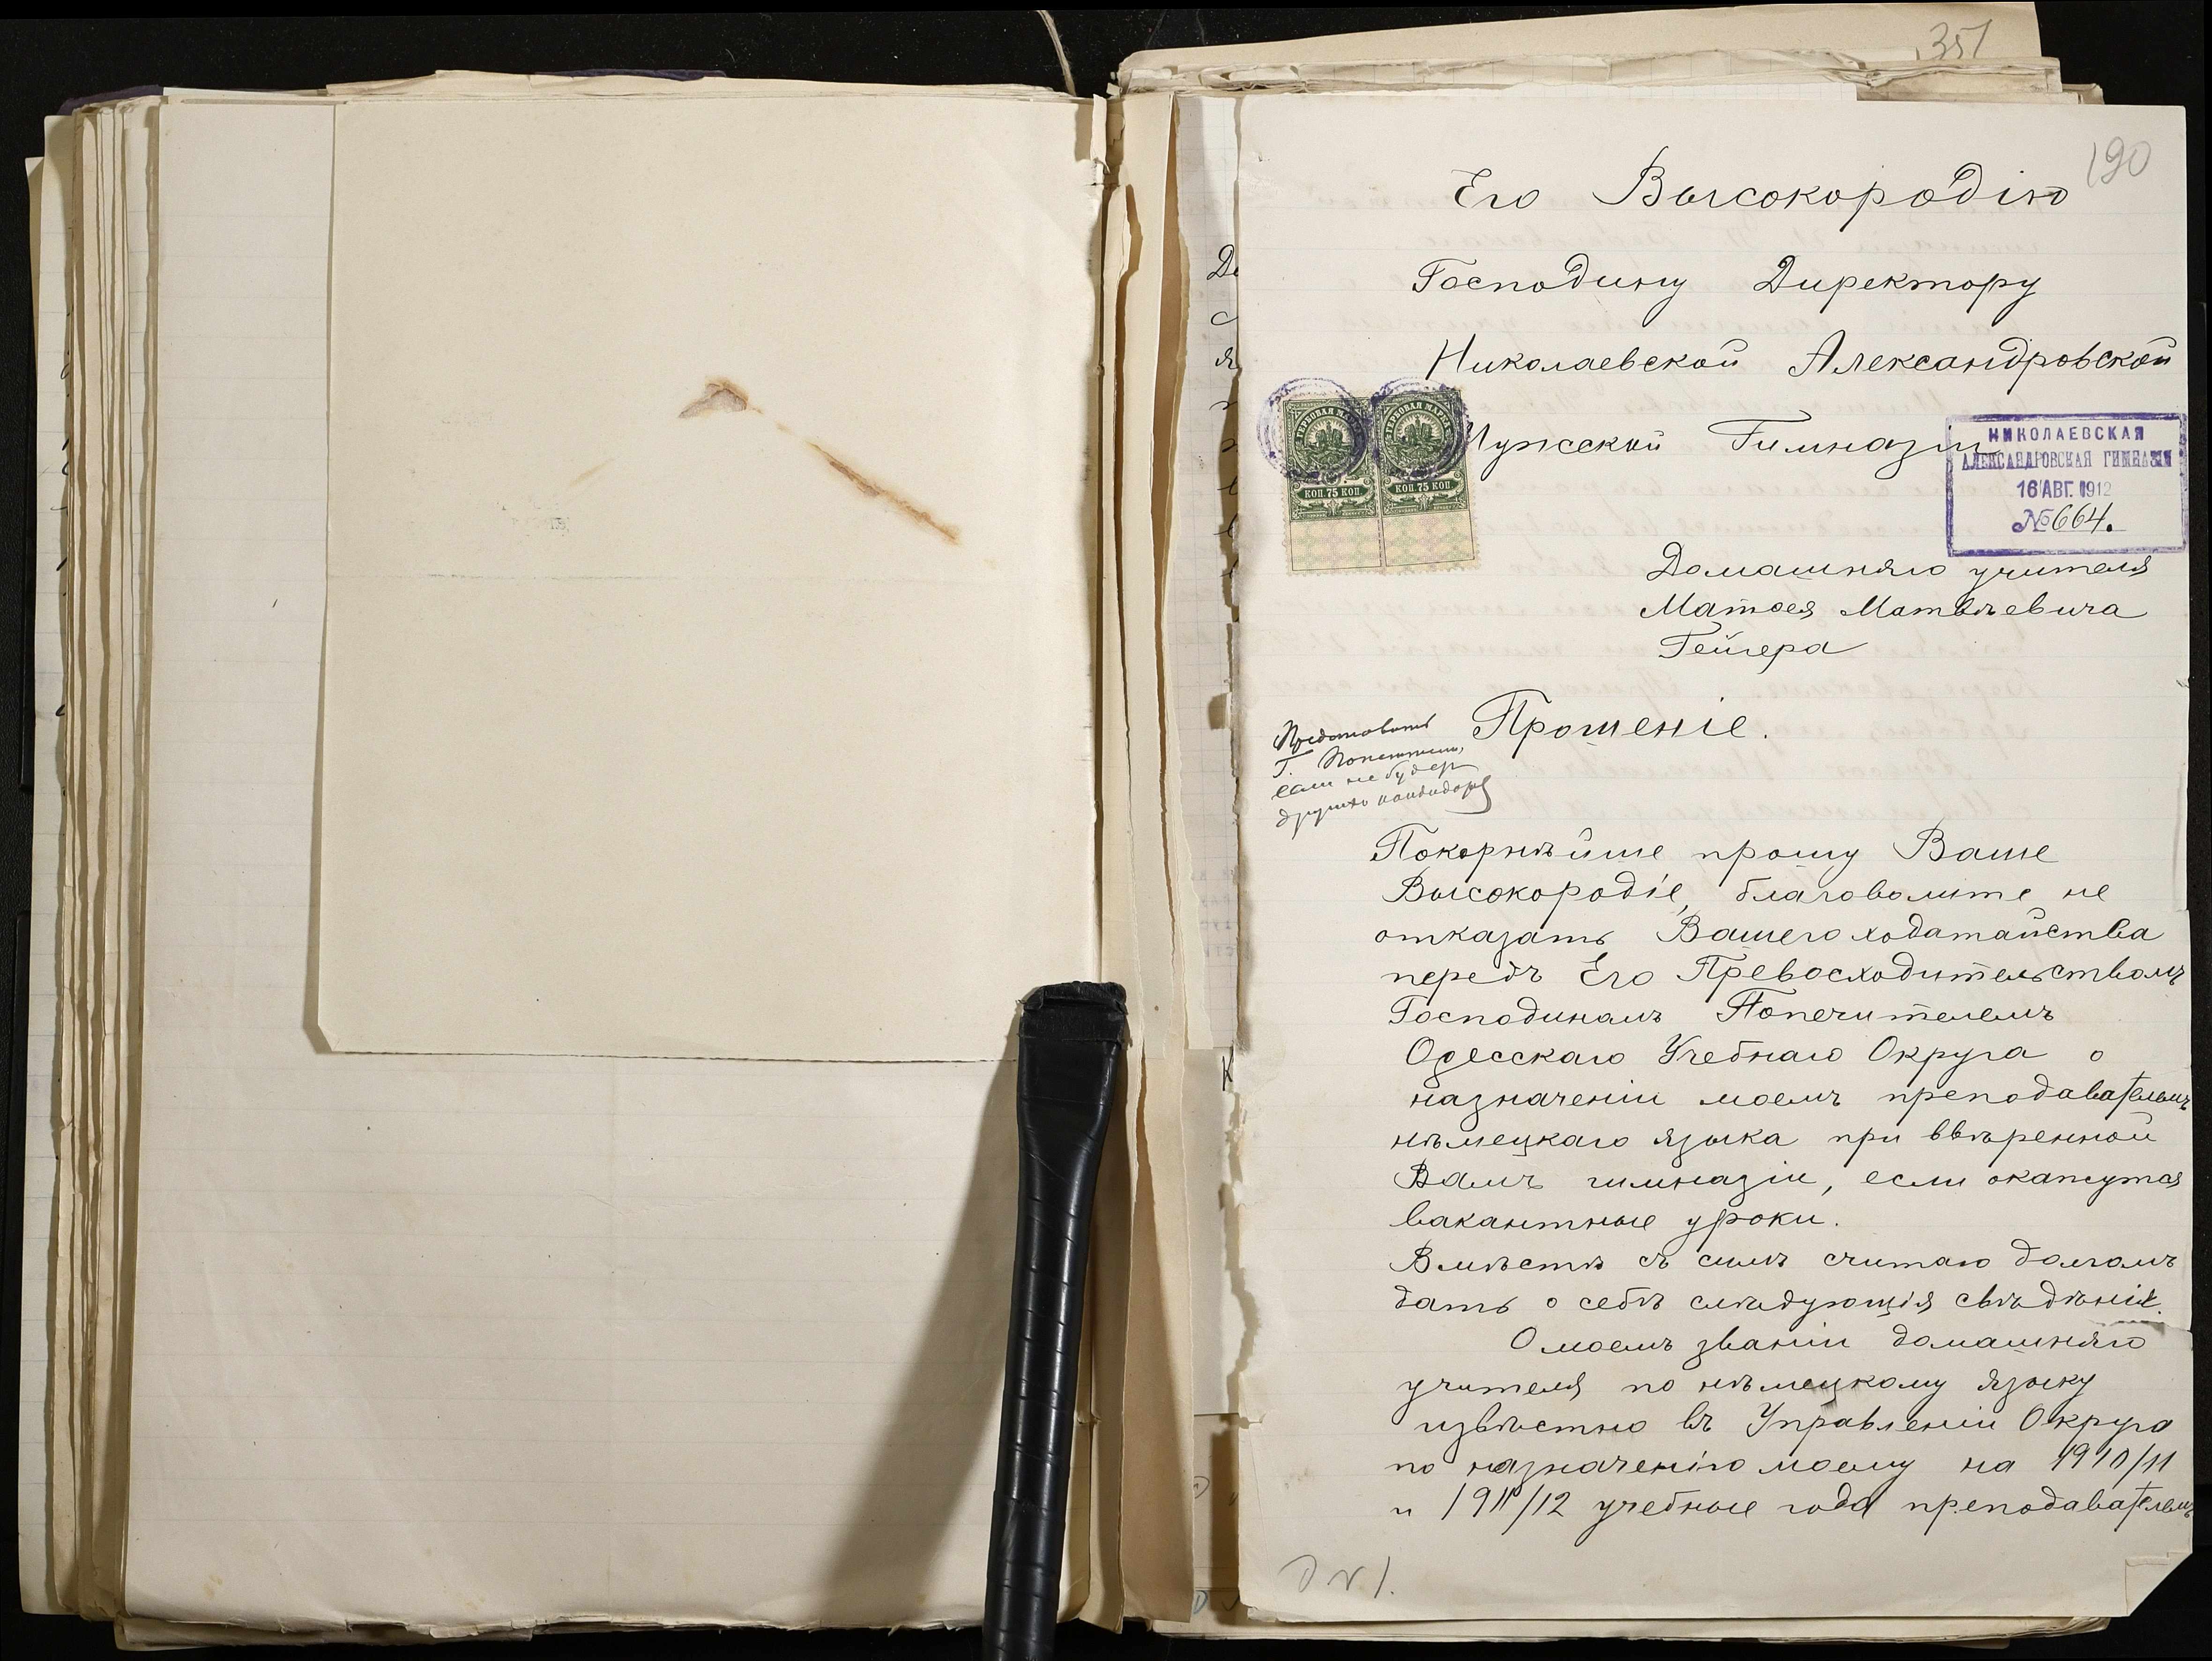 351
190
Его Высокородію
Господину Директору
Николаевской Александровской
Мужской Гимназіи
ГЕРБОВАЯ МАРКА
КОП. 75 КОП.
ГЕРБОВАЯ МАРКА
КОП. 75 КОП.
НИКОЛАЕВСКАЯ
АЛЕКСАНДРОВСКАЯ ГИМНАЗІЯ
16 АВГ. 1912
№ 664.
Домашняго учителя
Матвея Матвѣевича
Гейгера
Прошеніе.
Представить
Г. Попечителю,
если не будет
других кандидатов
Покорнѣйше прошу Ваше
Высокородіе, благоволите не
отказать Вашего ходатайства
передъ Его Превосходительствомъ
Господиномъ Попечителемъ
Одесскаго Учебнаго Округа о
назначеніи моемъ преподавателемъ
нѣмецкаго языка при ввѣренной
Вамъ гимназіи, если окажутся
вакантные уроки.
Вмѣстѣ съ симъ считаю долгомъ
дать о себѣ слѣдующія свѣдѣнія.
О моемъ званіи домашняго
учителя по нѣмецкому языку
извѣстно въ Управленіи Округа
по назначенію моему на 1910/11
и 1911/12 учебные года преподавателемъ